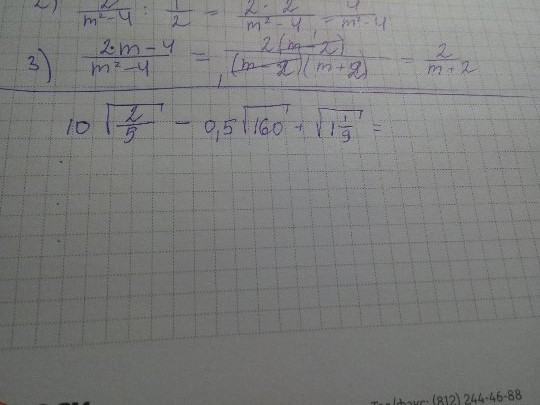 2) 2/(m²-4) : 1/2 = (2·2)/(m²-4) = 4/(m²-4)
3) (2·m-4)/(m²-4) = 2(m-2)/((m-2)(m+2)) = 2/(m+2)
10 √(2/5) - 0,5√160 + √(1 1/9) =
Тел/факс: (812) 244-46-88